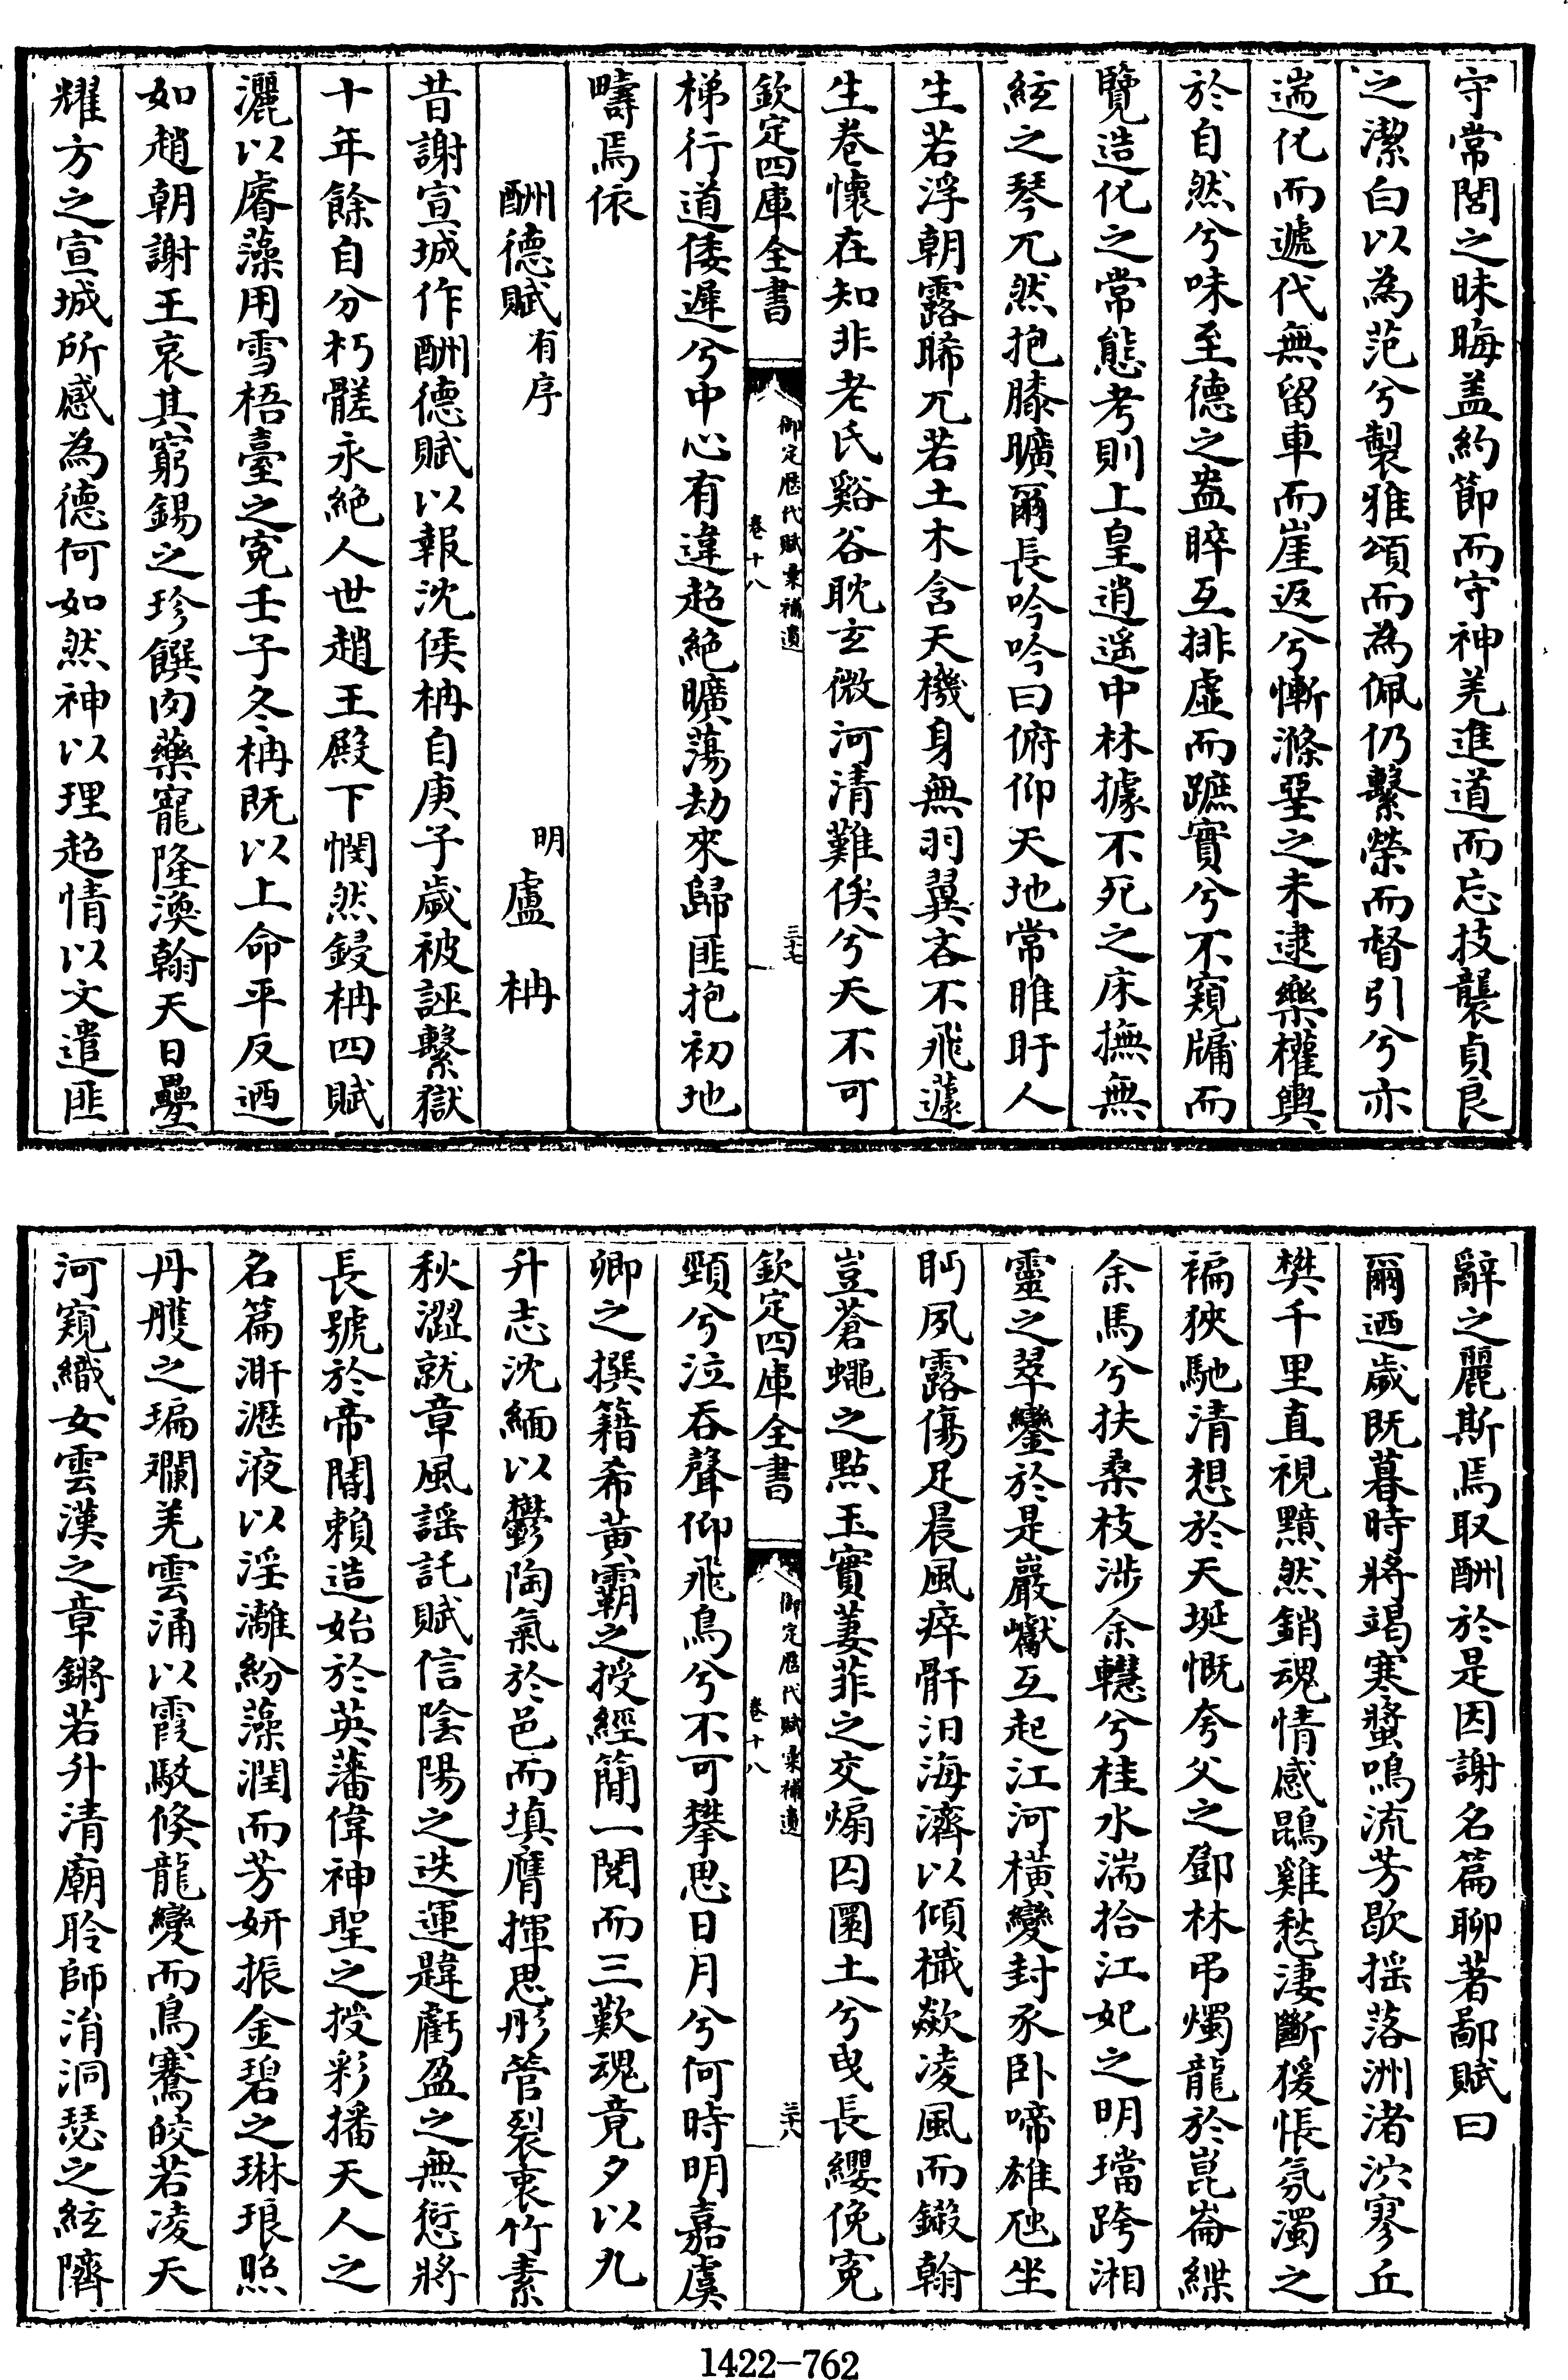 守常閟之昧晦盖約節而守神羌進道而忘技襲貞良
之潔白以為范兮製雅頌而為佩仍繫榮而督引兮亦
遄化而遞代無留車而崖返兮慚滌堊之未逮樂權輿
於自然兮味至德之盎睟互排虛而蹠實兮不窺牖而
覽造化之常態考則上皇逍遥中林據不死之床撫無
絃之琴兀然抱膝曠爾長吟吟曰俯仰天地常睢盱人
生若浮朝露晞兀若土木含天機身無羽翼吝不飛蘧
生卷懷在知非老氏谿谷耽玄微河清難俟兮天不可
欽定四庫全書
御定歴代賦彙補遺
卷十八
三十七
梯行道倭遲兮中心有違超絶曠蕩劫來歸匪抱初地
疇焉依
酬德賦有序
明盧柟
昔謝宣城作酬德賦以報沈侯柟自庚子歲被誣繫獄
十年餘自分朽髊永絶人世趙王殿下憫然鋟柟四賦
灑以睿藻用雪梧臺之寃壬子冬柟既以上命平反迺
如趙朝謝王哀其窮錫之珍饌肉藥寵隆渙翰天日曡
耀方之宣城所感為德何如然神以理超情以文遣匪
辭之麗斯焉取酬於是因謝名篇聊著鄙賦曰
爾迺歲既暮時將竭寒螿鳴流芳歇揺落洲渚泬寥丘
樊千里直視黯然銷魂情感鵾雞愁淒斷猨悵氛濁之
褊狹馳清想於天埏慨夸父之鄧林弔燭龍於崑崙緤
余馬兮扶桑枝涉余轊兮桂水湍拾江妃之明璫跨湘
靈之翠鑾於是巖巘互起江河橫變封豕卧啼雄虺坐
眄夙露傷足晨風瘁骭汨海濟以傾檝歘凌風而鎩翰
豈蒼蠅之點玉實萋菲之交煽囚圜土兮曳長纓俛寃
欽定四庫全書
御定歴代賦彙補遺
卷十八
三十八
頸兮泣吞聲仰飛鳥兮不可攀思日月兮何時明嘉虞
卿之撰籍希黄霸之授經簡一閱而三歎魂竟夕以九
升志沈緬以鬱陶氣於邑而填膺揮思彤管裂衷竹素
秋澀就章風謡託賦信陰陽之迭運韙虧盈之無愆將
長號於帝閽頼造始於英藩偉神聖之授彩播天人之
名篇澵瀝液以淫灕紛藻潤而芳妍振金碧之琳琅照
丹雘之㻞斕羌雲涌以霞駮倐龍變而鳥騫皎若凌天
河窺織女雲漢之章鏘若升清廟聆師涓洞瑟之絃隮
1422-762